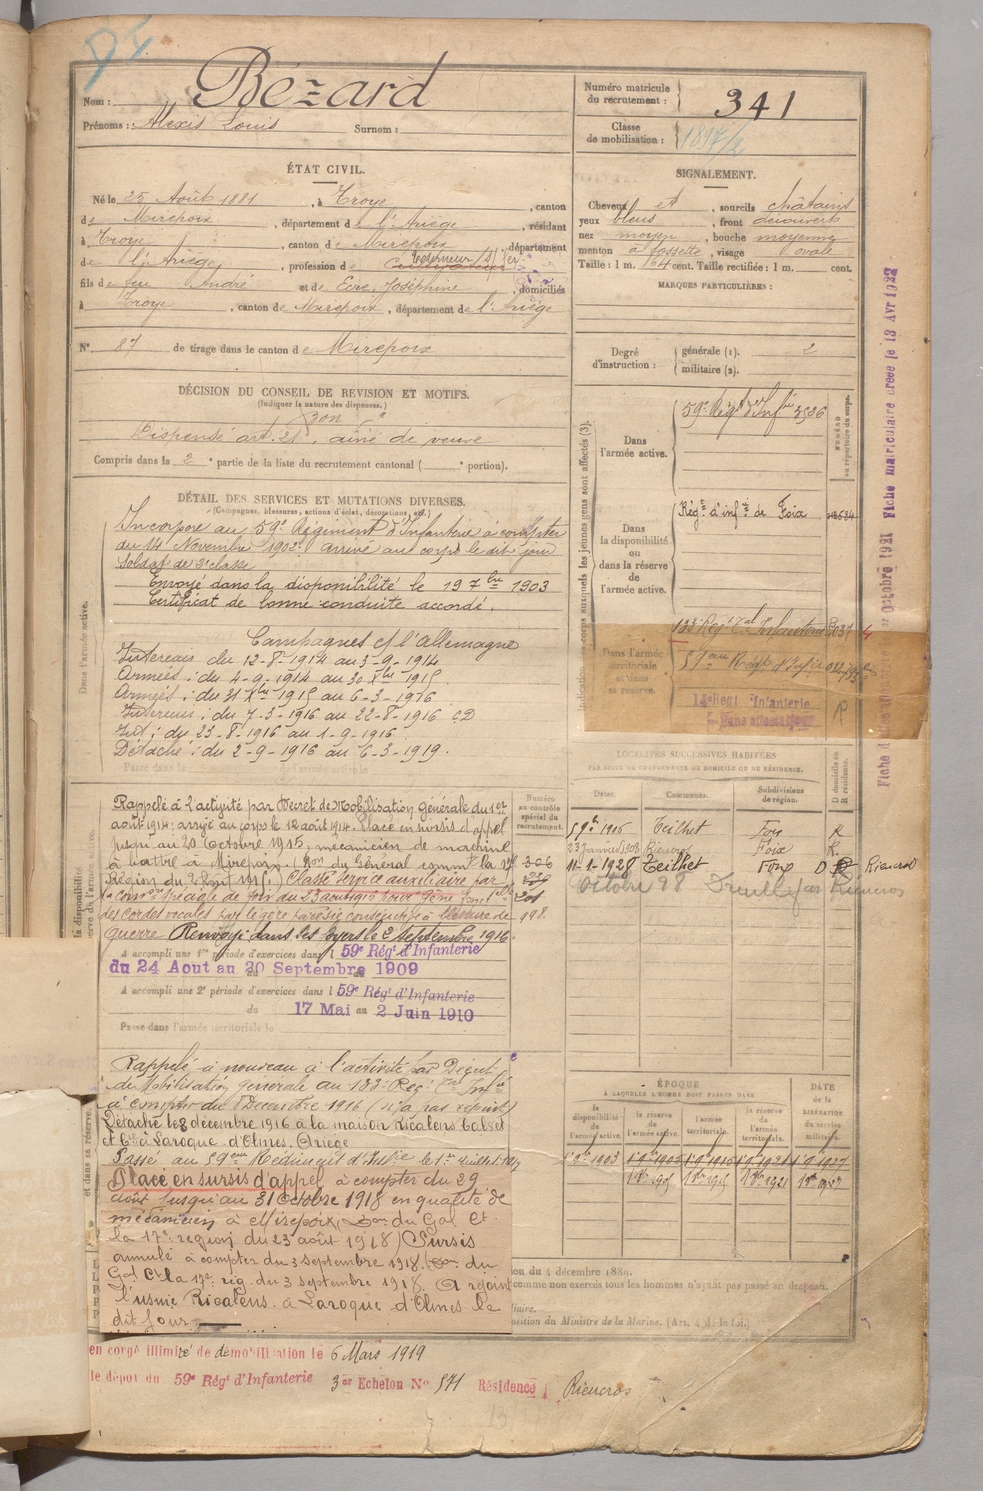 Nom : Bézard
Prénoms : Alexis Louis Surnom :
Numéro matricule du recrutement : 341
Classe de mobilisation : 1897/2
ÉTAT CIVIL.
Né le 25 Août 1881, à Troye, canton
de Mirepoix, département de l'Ariège, résidant
à Troye, canton de Mirepoix, département
de l'Ariège, profession de Cultivateur
fils de feu André et de Ecre, Joséphine, domiciliés
à Troye, canton de Mirepoix, département de l'Ariège
N° 87 de tirage dans le canton de Mirepoix
SIGNALEMENT.
Cheveux et, sourcils châtains
yeux bleus, front découvert
nez moyen, bouche moyenne
menton à fossette, visage ovale
Taille : 1 m. 64 cent. Taille rectifiée : 1 m. cent.
MARQUES PARTICULIÈRES :
Degré d'instruction : générale (1). 2
militaire (2).
DÉCISION DU CONSEIL DE REVISION ET MOTIFS.
(Indiquer la nature des dispenses.)
Bon
Dispensé art. 21, aîné de veuve
Compris dans la 2e partie de la liste du recrutement cantonal ( e portion).
DÉTAIL DES SERVICES ET MUTATIONS DIVERSES.
(Campagnes, blessures, actions d'éclat, décorations, etc.)
Dans l'armée active.
Incorporé au 59e Régiment d'Infanterie à compter
du 14 Novembre 1902. arrivé au corps le dit jour
Soldat de 2e classe
Envoyé dans la disponibilité le 19 7bre 1903
Certificat de bonne conduite accordé.
Campagnes c/ l'Allemagne
Intérieur du 12-8-1914 au 3-9-1914
Armées : du 4-9-1914 au 30 Xbre 1915
Armées : du 31 Xbre 1915 au 6-3-1916
Intérieur : du 7-3-1916 au 22-8-1916 CD
Int : du 23-8-1916 au 1-9-1916
Détaché : du 2-9-1916 au 6-3-1919.
Passé dans la de l'armée active le
Indication des corps auxquels les jeunes gens sont affectés (3).
NUMÉRO au répertoire du corps.
Dans l'armée active.
59e Régt d'Infie 3536
Dans la disponibilité ou dans la réserve de l'armée active.
Régt d'infie de Foix
Dans l'armée territoriale et dans sa réserve.
133e Régt Tal Infanterie
59ème Régt d'Infie
14e Regt Infanterie
Sans affectation
R
Fiche matriculaire créée le 13 Avr 1922
Octobre 1921
LOCALITÉS SUCCESSIVES HABITÉES
PAR SUITE DE CHANGEMENTS DE DOMICILE OU DE RÉSIDENCE.
Dates. Communes. Subdivisions de région. D domicile ou R résidence.
Teilhet Foix R
23 janvier 1908 Rieucros Foix R.
11-1-1928 Teilhet Foix D R Rieucros
Octobre 28
Numéro au contrôle spécial du recrutement.
306
201
198.
Rappelé à l'activité par Décret de Mobilisation générale du 1er
août 1914 ; arrivé au corps le 12 août 1914. Placé en sursis d'appel
jusqu'au 20 Octobre 1915, mécanicien de machine
à battre à Mirepoix. (Bon du Général commt la 17e
Région du 2 Août 1915.) Classé service auxiliaire par
la Comon spéciale de Foix du 23 août 1916 pour gêne fonctelle
des cordes vocales par légère parésie consécutive à blessure de
guerre Renvoyé dans ses foyers le 2 septembre 1916.
A accompli une 1re période d'exercices dans l 59e Régt d'Infanterie
du 24 Aout au 20 Septembre 1909
A accompli une 2e période d'exercices dans l 59e Régt d'Infanterie
du 17 Mai au 2 Juin 1910
Passé dans l'armée territoriale le
Rappelé à nouveau à l'activité par Décret
de Mobilisation générale au 133e Régt Tal Infie
à compter du 8 Décembre 1916 (n'a pas rejoint)
Détaché le 8 décembre 1916 à la maison Ricalens Calvet
et Cie à Laroque d'Olmes. Ariège
Passé au 59ème Régiment d'Infie le 1er Juillet 1917
Placé en sursis d'appel à compter du 29
août jusqu'au 31 Octobre 1918 en qualité de
mécanicien à Mirepoix, Bon du Gal Ct
la 17e région du 23 août 1918) Sursis
annulé à compter du 3 septembre 1918. (Bon du
Gal Ct la 17e rég. du 3 septembre 1918. A rejoint
l'usine Ricalens à Laroque d'Olmes le
dit jour.
et dans sa réserve.
ÉPOQUE
A LAQUELLE L'HOMME DOIT PASSER DANS
la disponibilité de l'armée active. la réserve de l'armée active. l'armée territoriale. la réserve de l'armée territoriale.
DATE de la LIBÉRATION du service militaire.
du 4 décembre 1889.
comme non exercés tous les hommes n'ayant pas passé au drapeau.
disposition du Ministre de la Marine. (Art. 4 de la loi.)
en congé illimité de démobilisation le 6 Mars 1919
le dépot du 59e Régt d'Infanterie 3er Echelon No 571 Résidence Rieucros